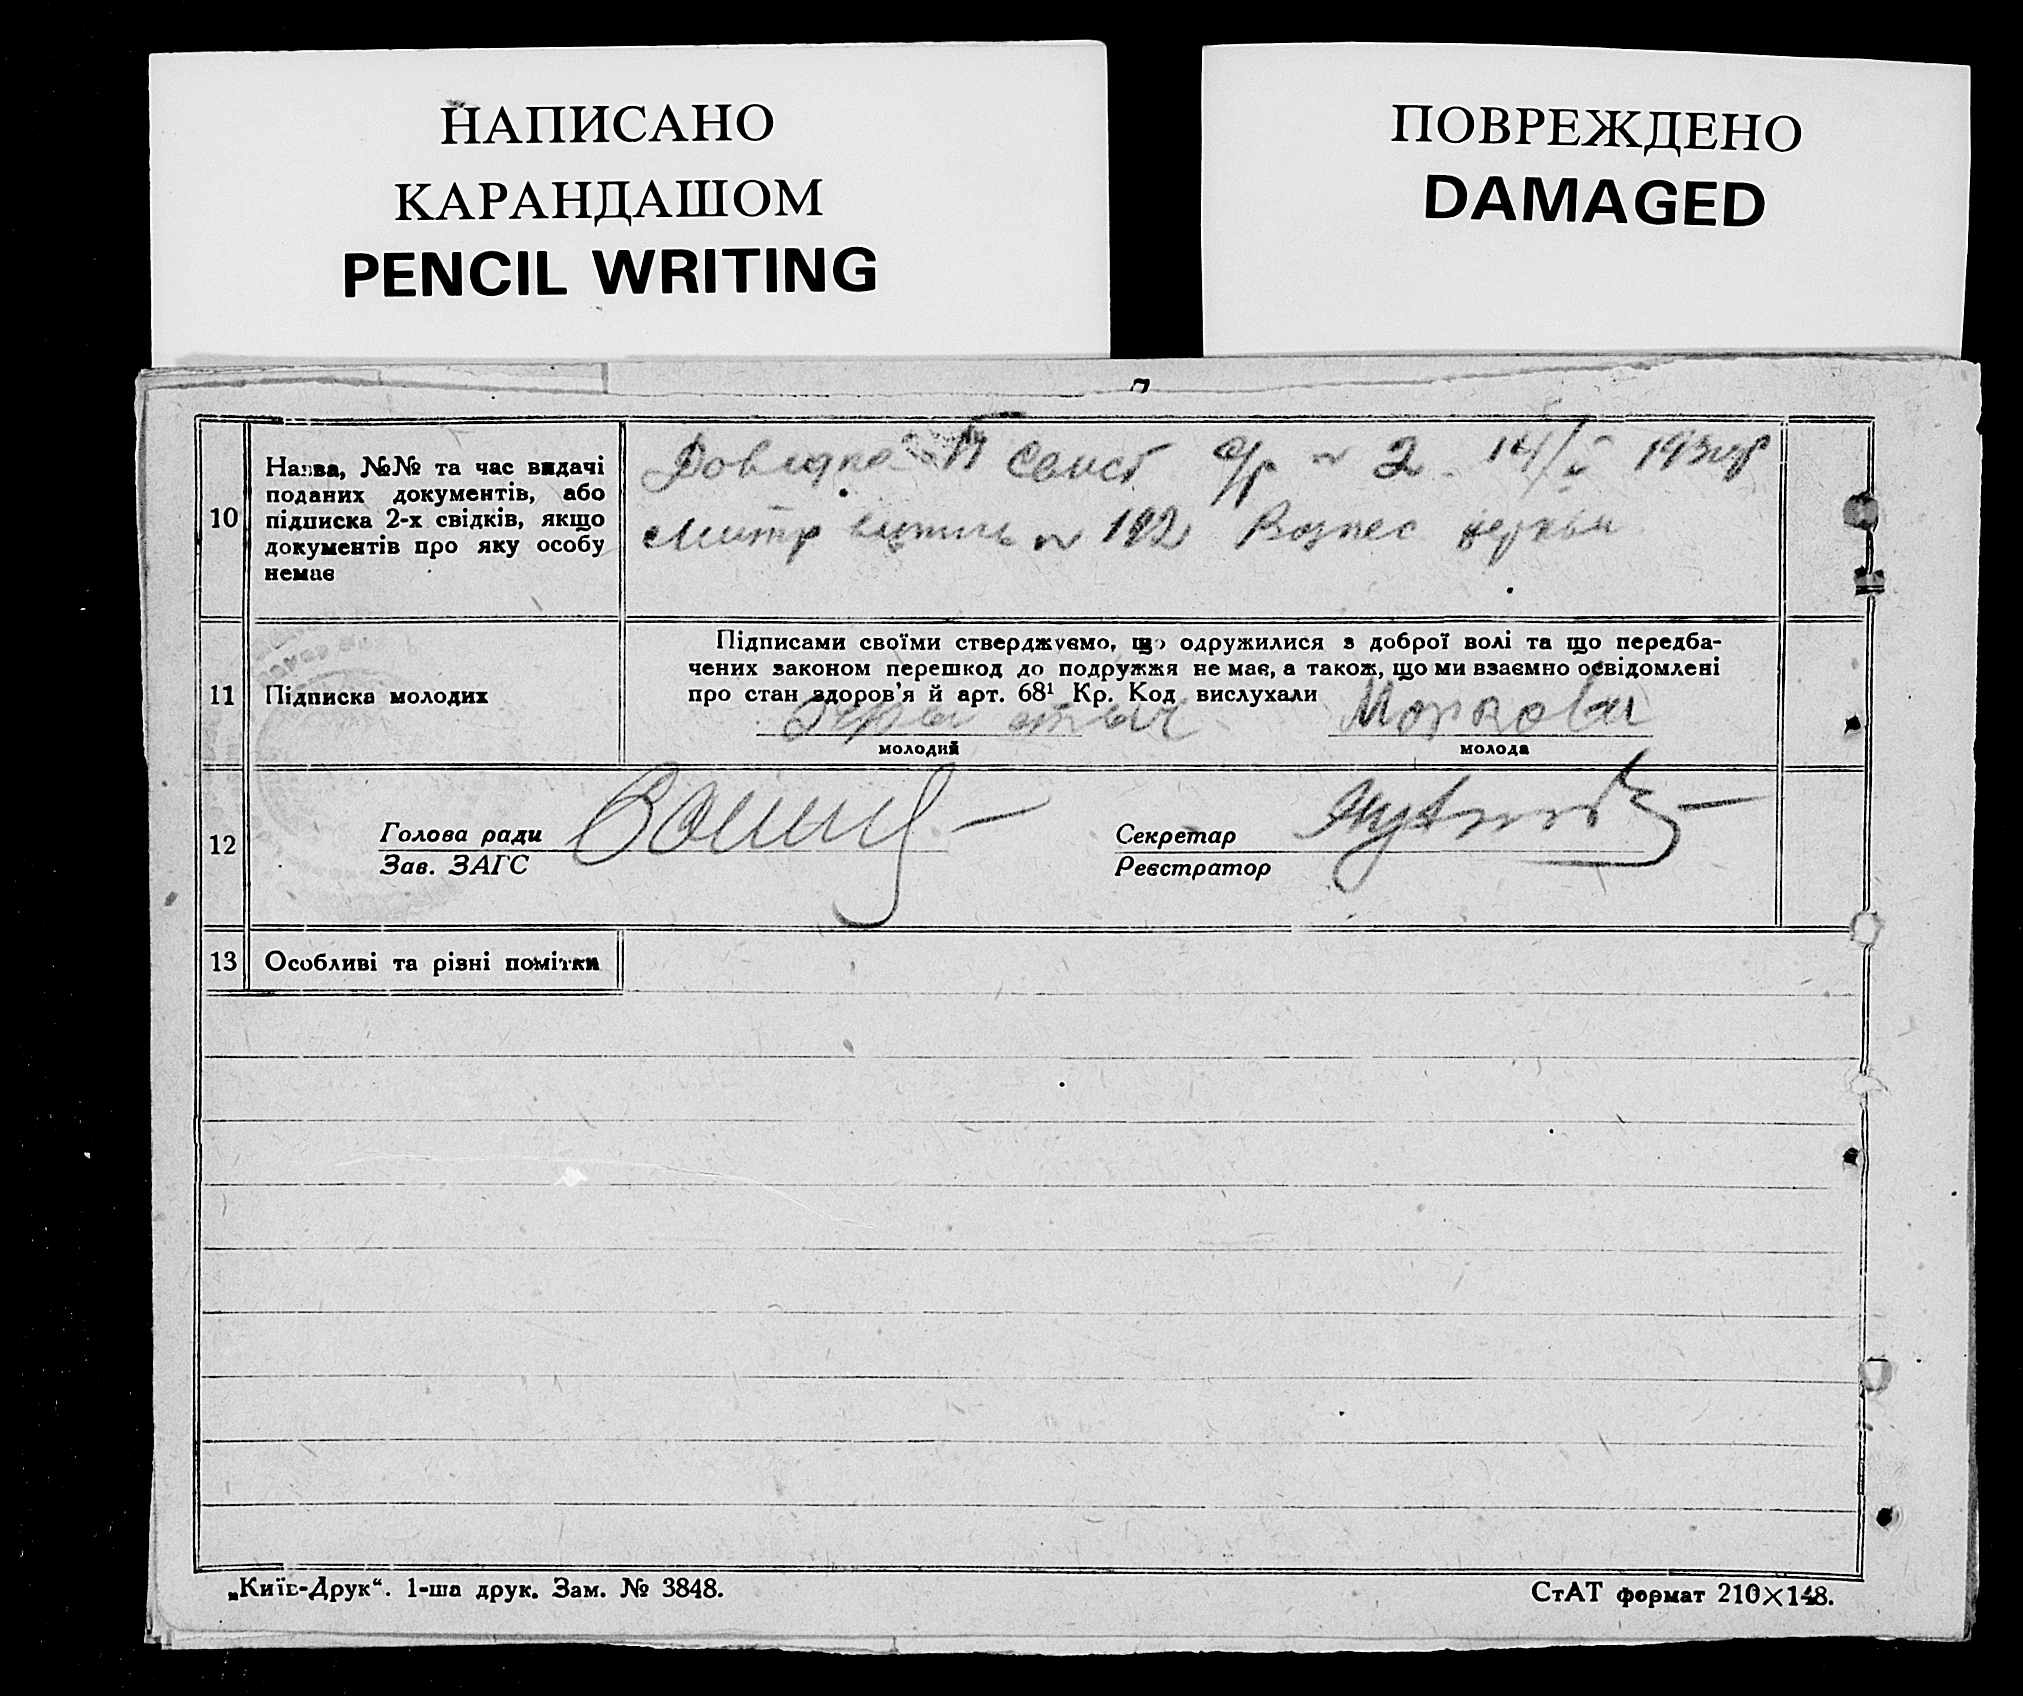 НАПИСАНО
КАРАНДАШОМ
PENCIL WRITING
ПОВРЕЖДЕНО
DAMAGED
10
Назва, №№ та час видачі
поданих документів, або
підписка 2-х свідків, якщо
документів про яку особу
немає
Довидка с/р № 2 14/
№ 192 Вознес церкви
11
Підписка молодих
Підписами своїми стверджуємо, що одружилися з доброї волі та що передба-
чених законом перешкод до подружжя не має, а також, що ми взаємно освідомлені
про стан здоров'я й арт. 68¹ Кр. Код вислухали
молодий
молода
12
Голова ради
Зав. ЗАГС
Секретар
Реєстратор
13
Особливі та різні помітки
„Київ-Друк“. 1-ша друк. Зам. № 3848.
СтАТ формат 210×148.